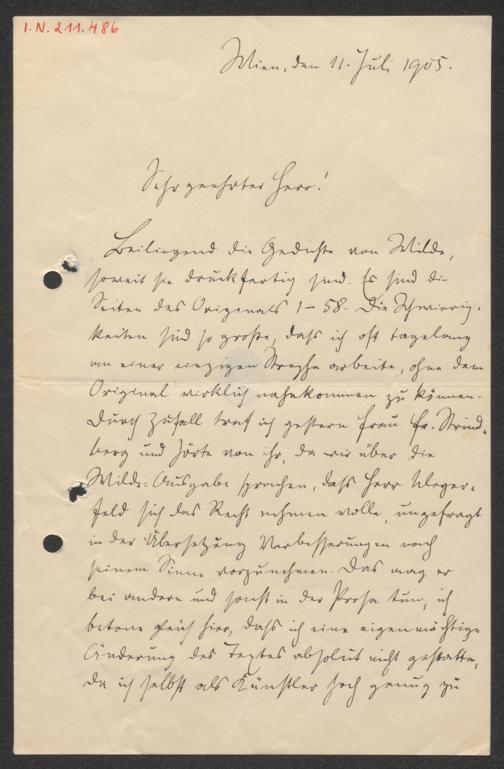 I.N. 211.486
Wien, den 11. Juli 1905.
Sehr geehrter Herr!
Beiliegend die Gedichte von Wilde,
soweit sie druckfertig sind. Es sind die
Seiten des Originals 1–58. Die Schwierig-
keiten sind so große, dass ich oft tagelang
an einer einzigen Strophe arbeite, ohne dem
Original wirklich nahekommen zu können.
Durch Zufall traf ich gestern Frau Fr. Strind-
berg und hörte von ihr, da wir über die
Wilde-Ausgabe sprachen, dass Herr Weger-
feld sich das Recht nehmen wolle, ungefragt
in der Übersetzung Verbesserungen nach
seinem Sinne vorzunehmen. Das mag er
bei andern und sonst in der Prosa tun, ich
betone gleich hier, dass ich eine eigenmächtige
Änderung des Textes absolut nicht gestatte,
da ich selbst als Künstler hoch genug zu